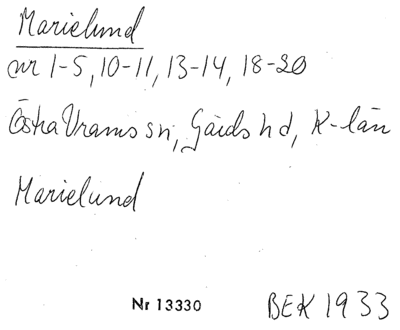 Marielund
nr 1-5, 10-11, 13-14, 18-20
Östra Vrams sn, Gärds hd, K-län
Marielund
Nr 13330 BEK 1933